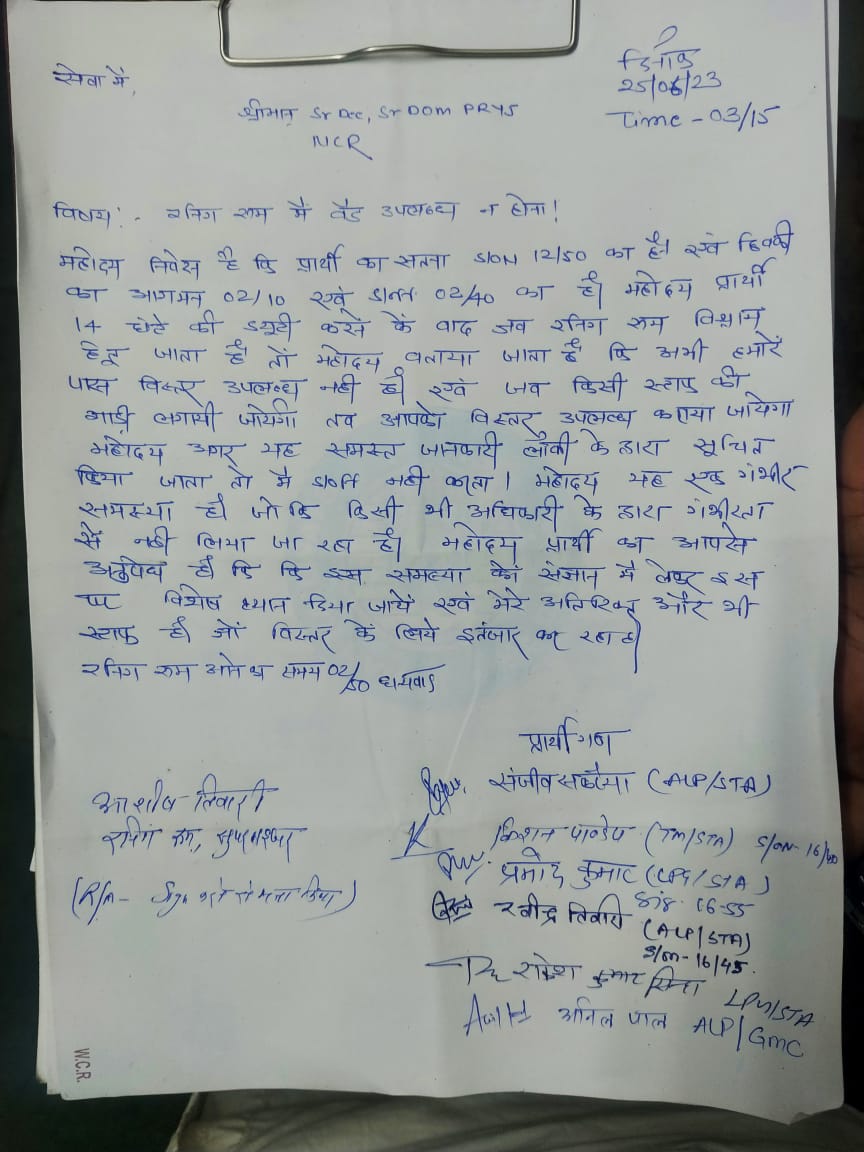 दिनांक
25/06/23
Time - 03/15
सेवा में,
श्रीमान Sr Dee, Sr DOM PRYJ
NCR
विषय:- रनिंग रूम में बैड उपलब्ध न होना!
महोदय निवेदन है कि प्रार्थी का सतना S/ON 12/50 का है। एवं छिवकी
का आगमन 02/10 एवं S/OFF 02/40 का है। महोदय प्रार्थी
14 घंटे की ड्यूटी करने के बाद जब रनिंग रूम विश्राम
हेतू जाता है तो महोदय बताया जाता है कि अभी हमारे
पास बिस्तर उपलब्ध नही है। एवं जब किसी स्टाफ की
गाड़ी लगायी जायेगी तब आपको बिस्तर उपलब्ध कराया जायेगा
महोदय अगर यह समस्त जानकारी लॉबी के द्वारा सूचित
किया जाता तो मै S/OFF नही करता। महोदय यह एक गंभीर
समस्या है जो कि किसी भी अधिकारी के द्वारा गंभीरता
से नही लिया जा रहा है। महोदय प्रार्थी का आपसे
है कि कि इस समस्या को संज्ञान मे लेकर इस
पर विशेष ध्यान दिया जाये एवं मेरे अतिरिक्त और भी
स्टाफ है जो बिस्तर के लिये इंतजार कर रहा है।
रनिंग रूम समय 02/50 धन्यवाद
प्रार्थी गण
संजीव (ALP/STA)
आशीष तिवारी
रनिंग रूम,
किशन पाण्डेय (TM/STA) S/ON-16/40
प्रमोद कुमार (LPG/STA)
16-55
(R/m- Sign करने से मना किया)
रवीन्द्र तिवारी
(ALP/STA)
S/on-16/45
राकेश कुमार LPM/STA
अनिल पाल ALP/GMC
W.C.R.